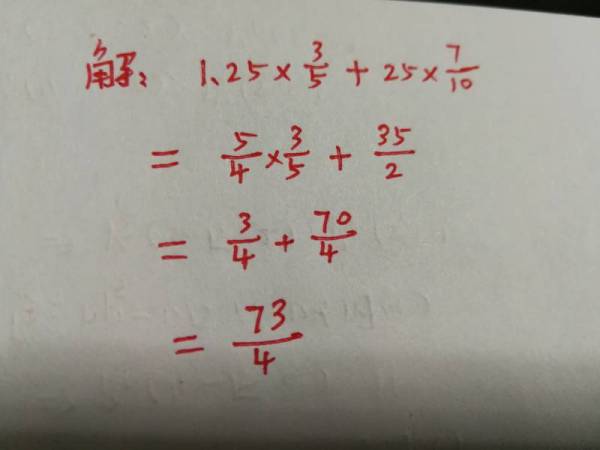 解: 1.25×3/5 + 25×7/10
= 5/4×3/5 + 35/2
= 3/4 + 70/4
= 73/4